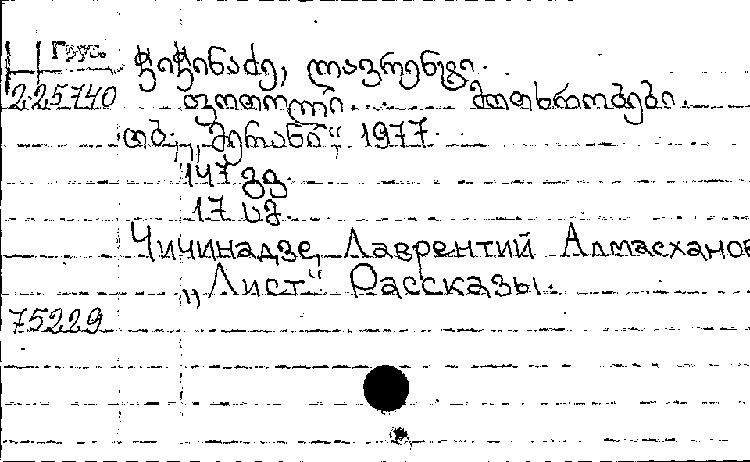 Груз.
ჭიჭინაძე, ლავრენტი.
225740 ფოთოლი. მოთხრობები.
თბ., „მერანი“ 1977.
147 გვ.
17 სმ.
Чичинадзе, Лаврентий Алмасханов
„Лист“ Рассказы.
75229